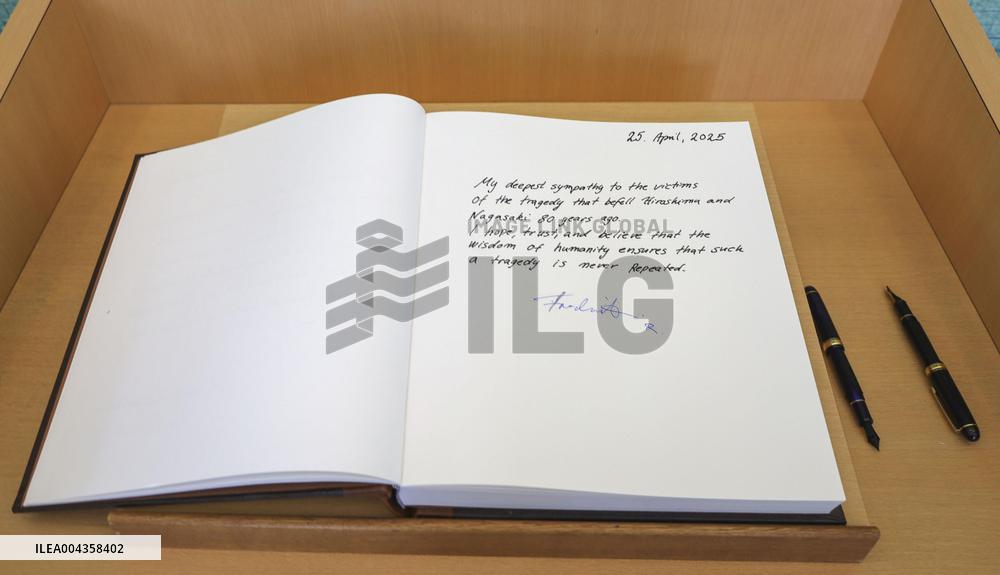 25. April, 2025
My deepest sympathy to the victims
of the tragedy that befell Hiroshima and
Nagasaki 80 years ago.
I hope, trust, and believe that the
wisdom of humanity ensures that such
a tragedy is never Repeated.
R.
IMAGE LINK GLOBAL
ILG
ILEA004358402